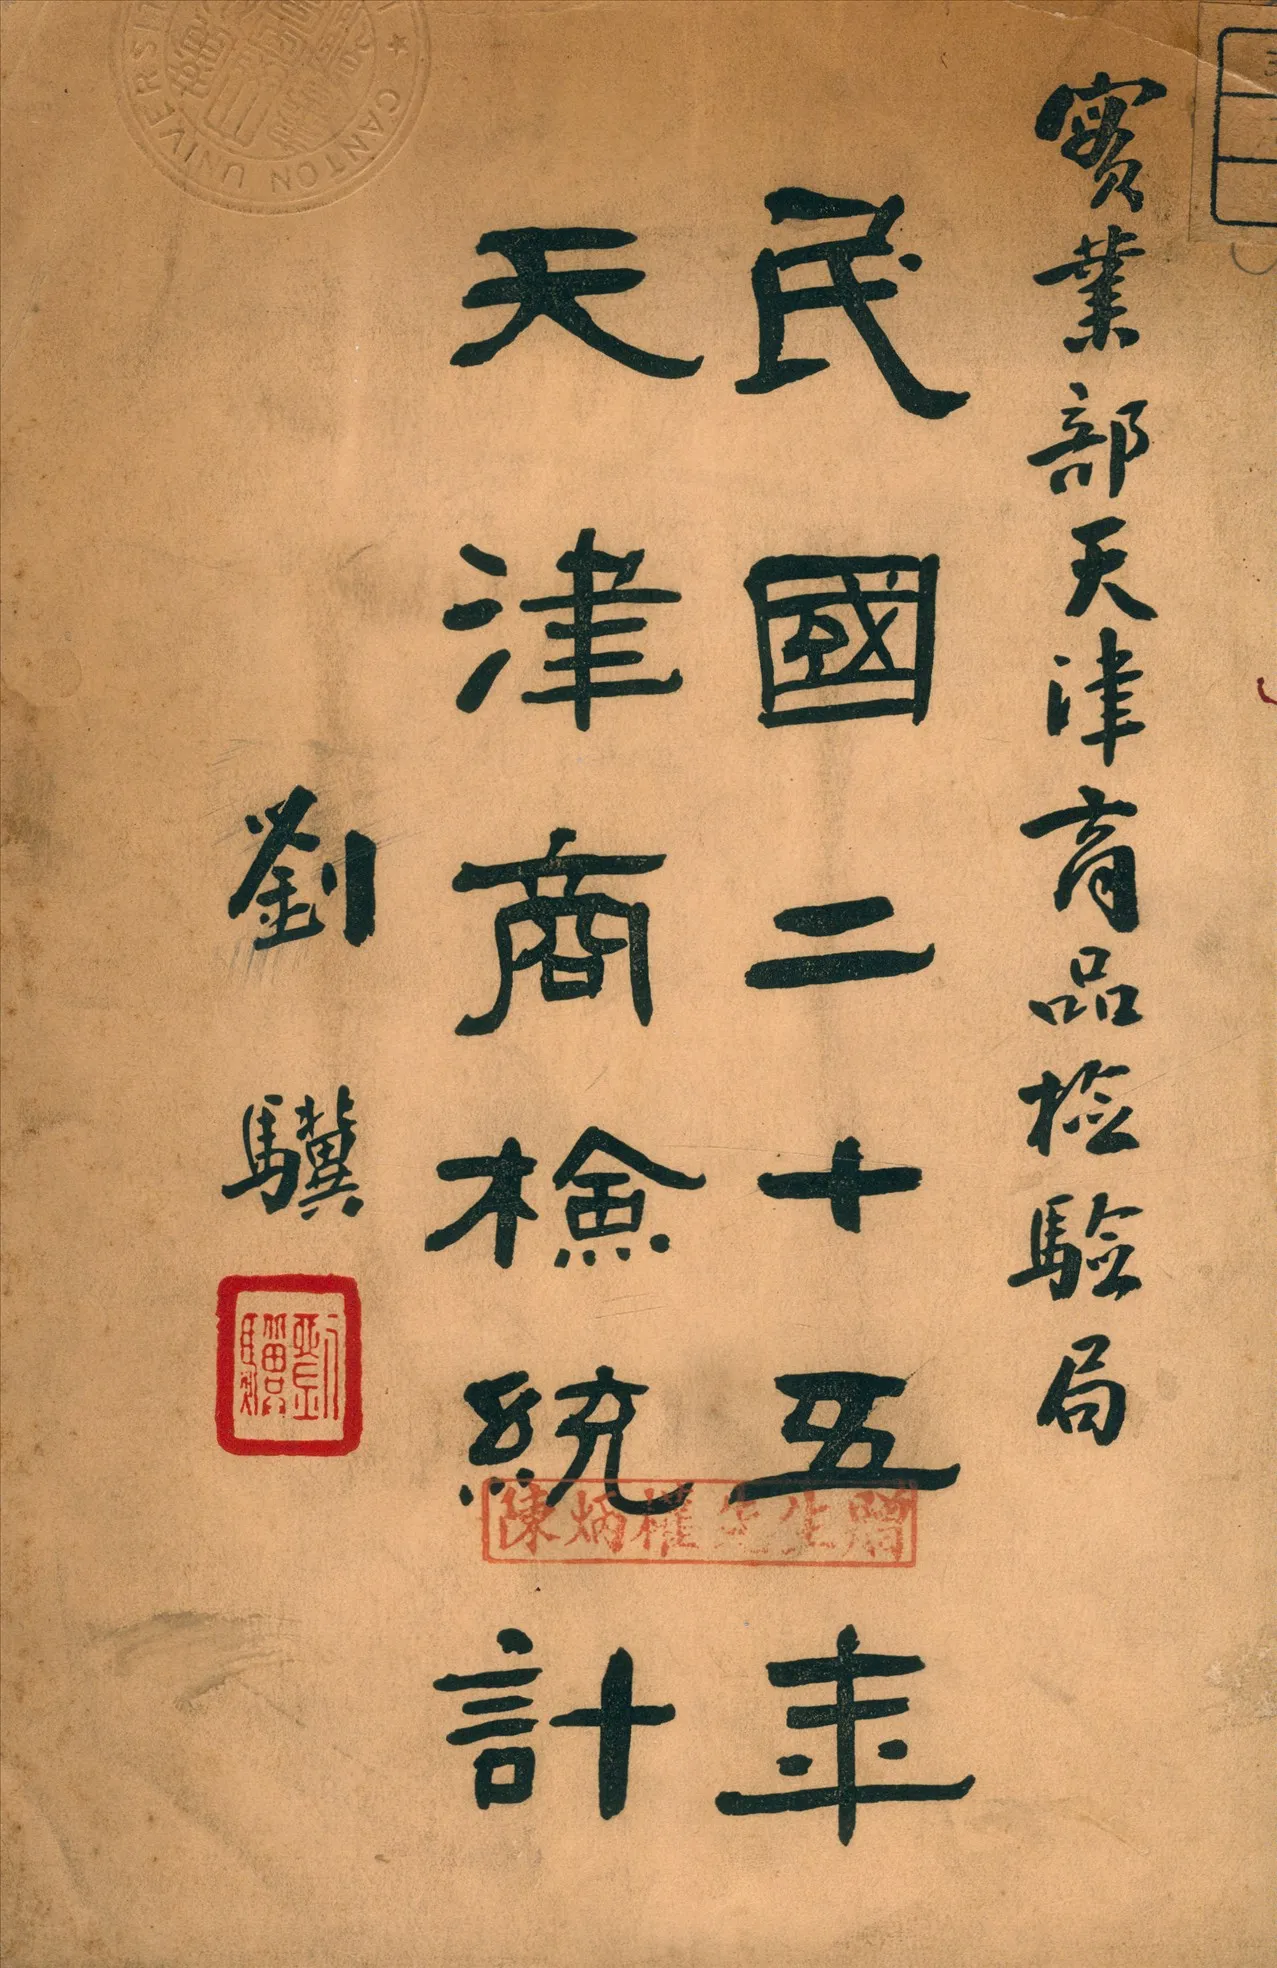 實業部天津商品检驗局
民國二十五年
天津商檢統計
劉驥
劉驥
陳炳權先生贈
CANTON UNIVERSI